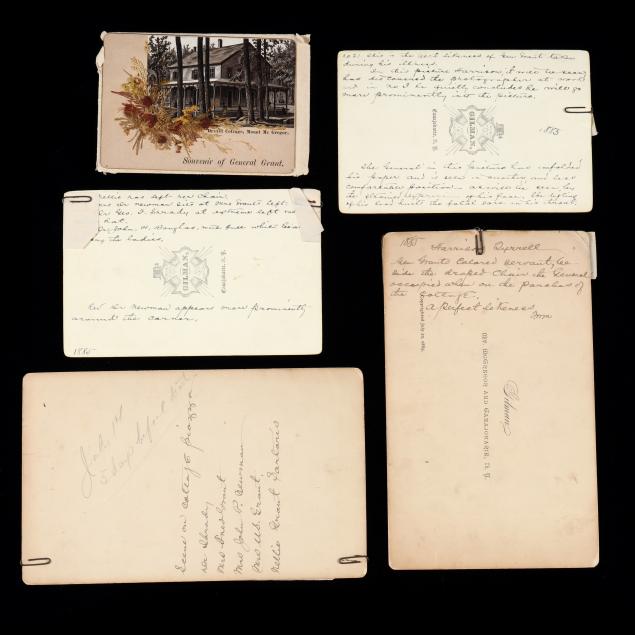 Drexel Cottage, Mount Mc Gregor.
Souvenir of General Grant.
this is the last likeness of Gen Grant taken
during his illness.
In this picture Harrison, it will be seen,
has discovered the photographer at work
and in No 3 he quietly concludes he will go
more prominently into the picture.
GILMAN,
Canajoharie, N. Y.
1885
The General in this picture has unfolded
his paper and is seen in another and less
comfortable position as will be seen by
the strained expression of his face, the
Nellie has left her chair.
Rev Dr Newman sits at Mrs Grant's left.
Dr Geo. F. Shrady at extreme left no
hat.
Dr John H. Douglas, with full white beard
among the ladies.
GILMAN,
Canajoharie, N. Y.
Rev Dr Newman appears more prominently
around the corner.
1885
1885 Harrison Tyrrell
Gen Grants Colored servant, be-
side the draped Chair the General
occupied when on the porches of
the Cottage.
A perfect likeness
Copyrighted July 22, 1885.
Gilman,
MT. McGREGOR AND CANAJOHARIE, N. Y.
July 19
5 days before death
Scene on cottage piazza
Dr Shrady
Mrs Fred Grant
Mrs John P. Newman
Mrs U.S. Grant
Nellie Grant Sartoris